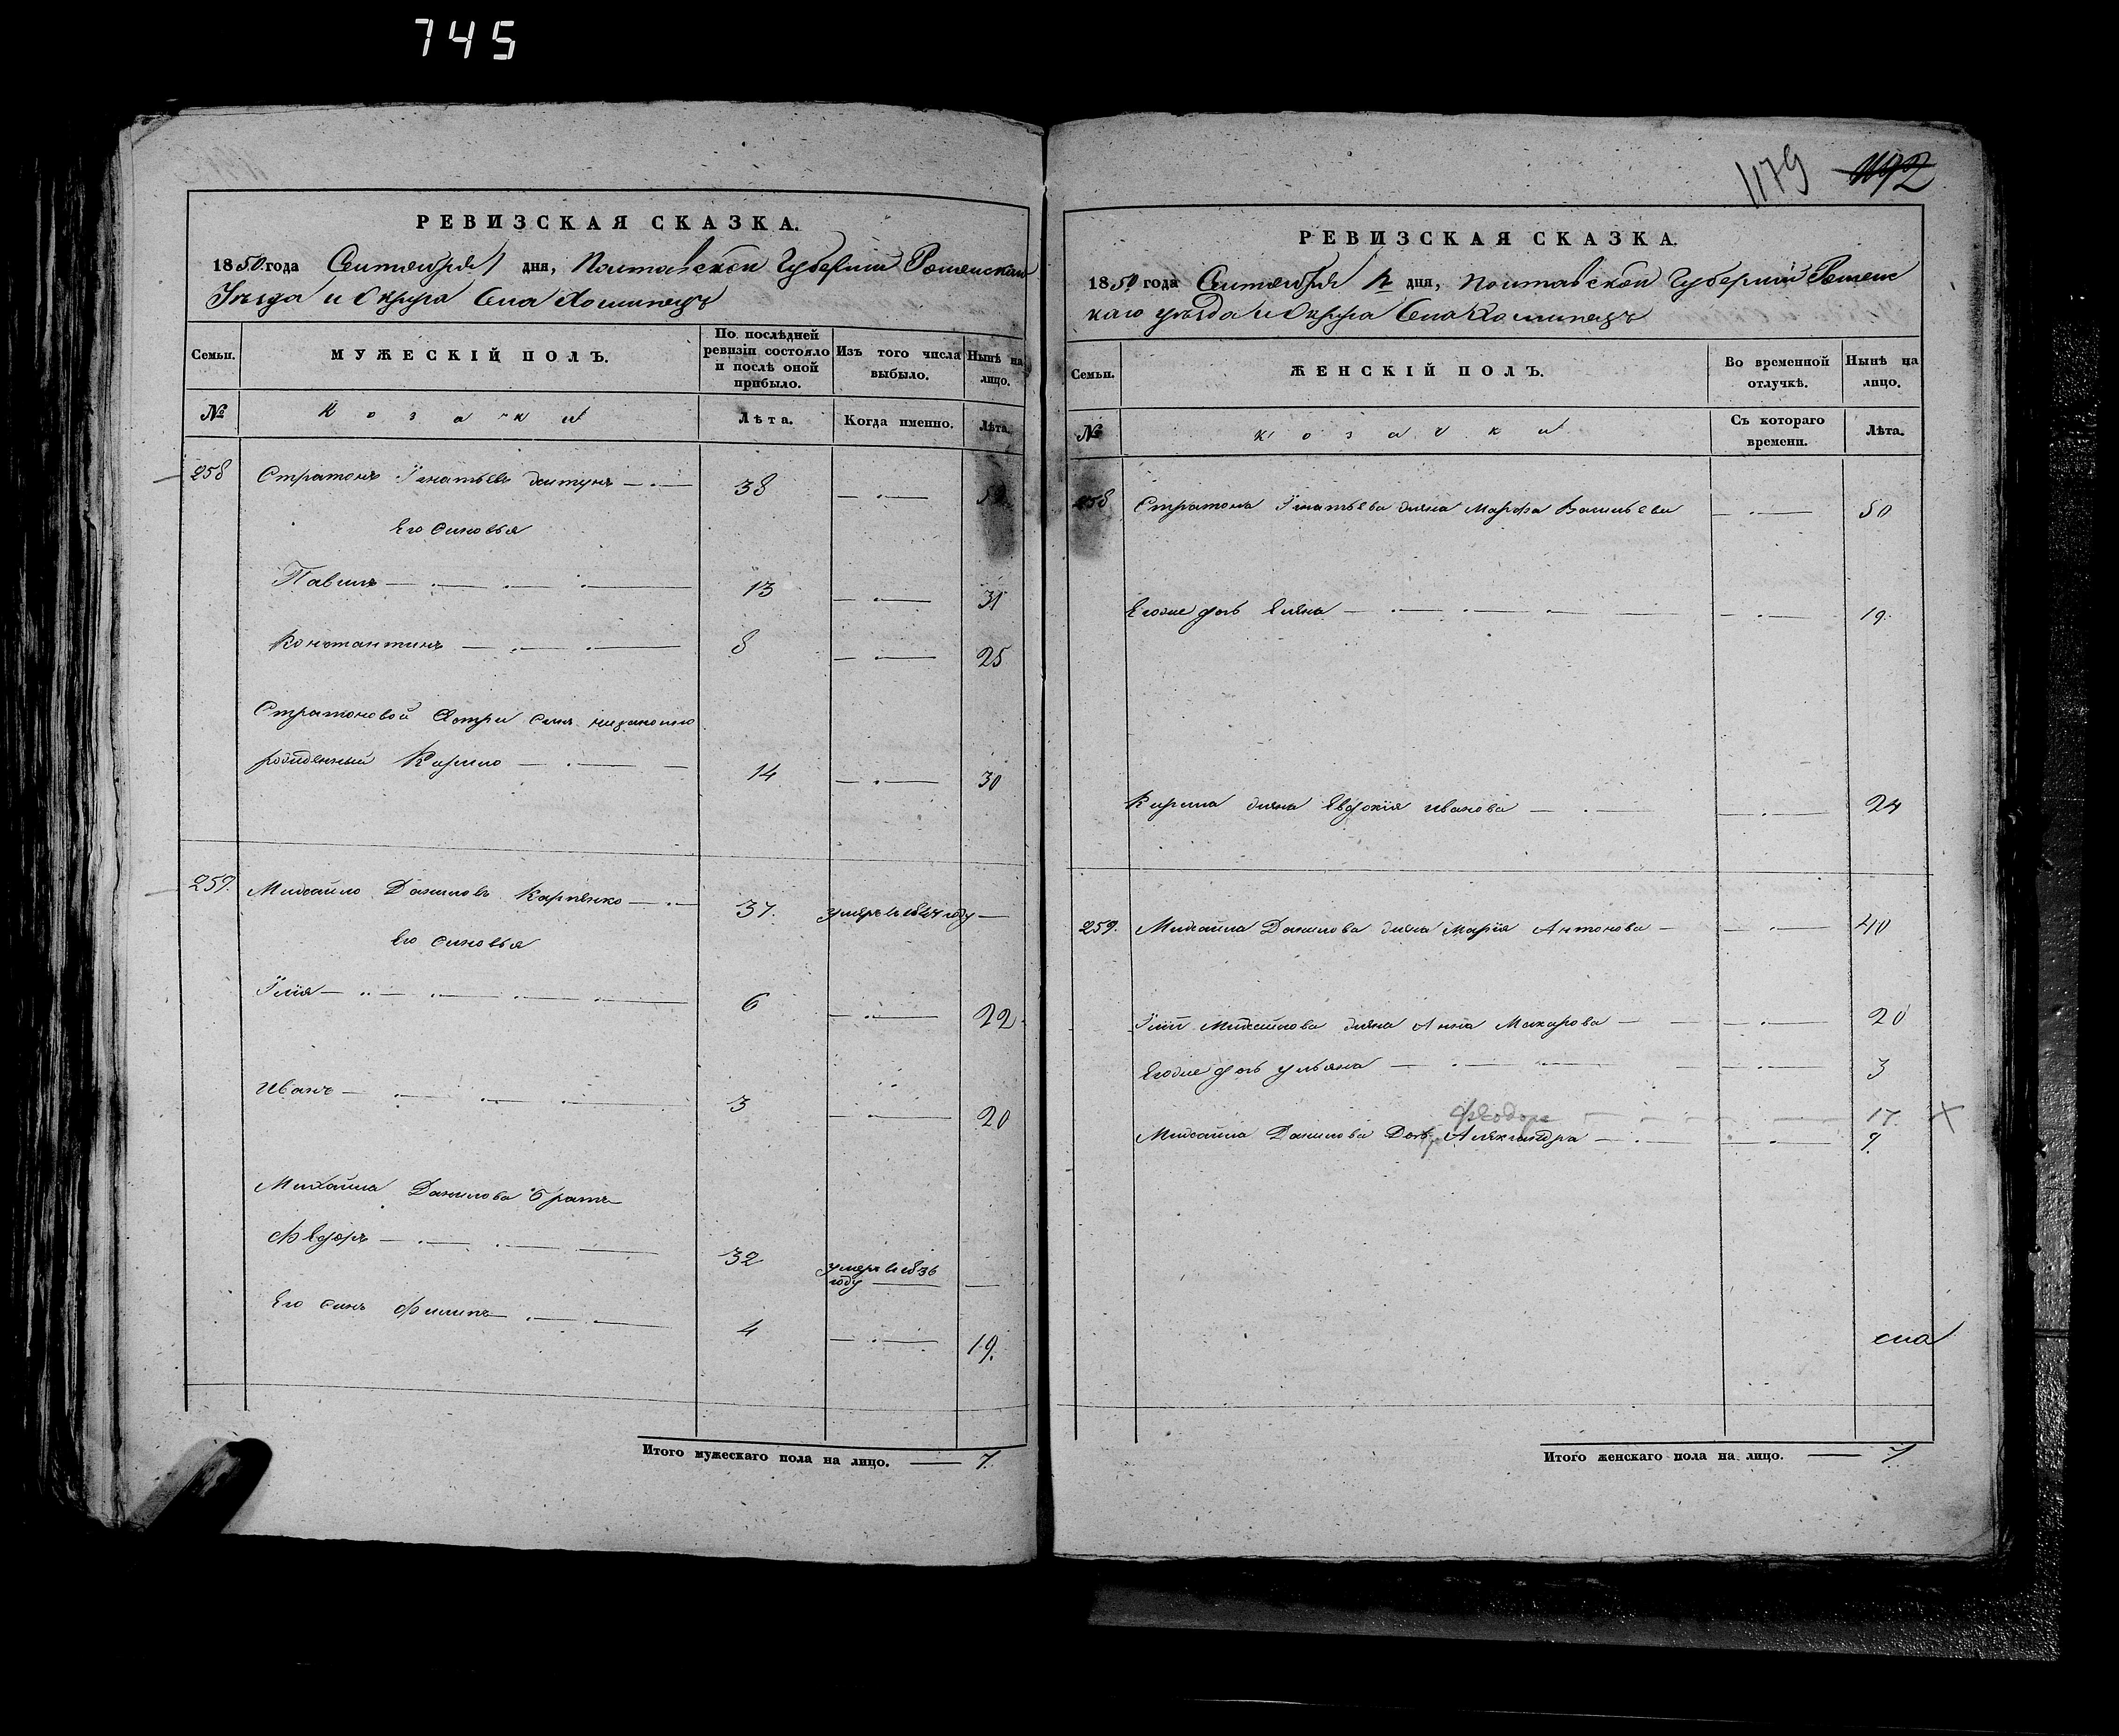 745
РЕВИЗСКАЯ СКАЗКА.
1850 года Сентября 1 дня, Полтавской Губернии Роменскаго
Уѣзда и Округа Села
Семьи. МУЖЕСКІЙ ПОЛЪ. По послѣдней ревизіи состояло и послѣ оной прибыло. Изъ того числа выбыло. Нынѣ на лицо.
№ Козаки Лѣта. Когда именно. Лѣта.
258 Стратонъ Игнатьевъ 38
Его Синовья
Павилъ 13 31
Константинъ 8 25
Стратоновой Сестри Синъ незаконно
рожденный Кирило 14 30
259. Михайло Даниловъ Карпенко 37. умеръ в году
Его Синовья
Ілія 6 22
Иванъ 3 20
Михайла Данилова братъ
Федоръ 32 умеръ в 1836
году
Его Синъ Филипъ 4 19.
Итого мужескаго пола на лицо. 7.
1179 1192
РЕВИЗСКАЯ СКАЗКА.
1850 года Сентября дня, Полтавской Губернии Роменс
каго уѣзда и Округа Села
Семьи. ЖЕНСКІЙ ПОЛЪ. Во временной отлучкѣ. Нынѣ на лицо.
№ Козачки Съ котораго времени. Лѣта.
258 Стратона Игнатьева жена Марфа Васильева 50
Егоже дочь Елена 19.
Кирила жена Евдокія Иванова 24
259. Михайла Данилова жена Марія Антонова 40
Іліи Михайлова жена Анна Макарова 20
Егоже дочь Ульяна 3
Феодора 17. X
Михайла Данилова Дочь Александра 9.
села
Итого женскаго пола на лицо. 7